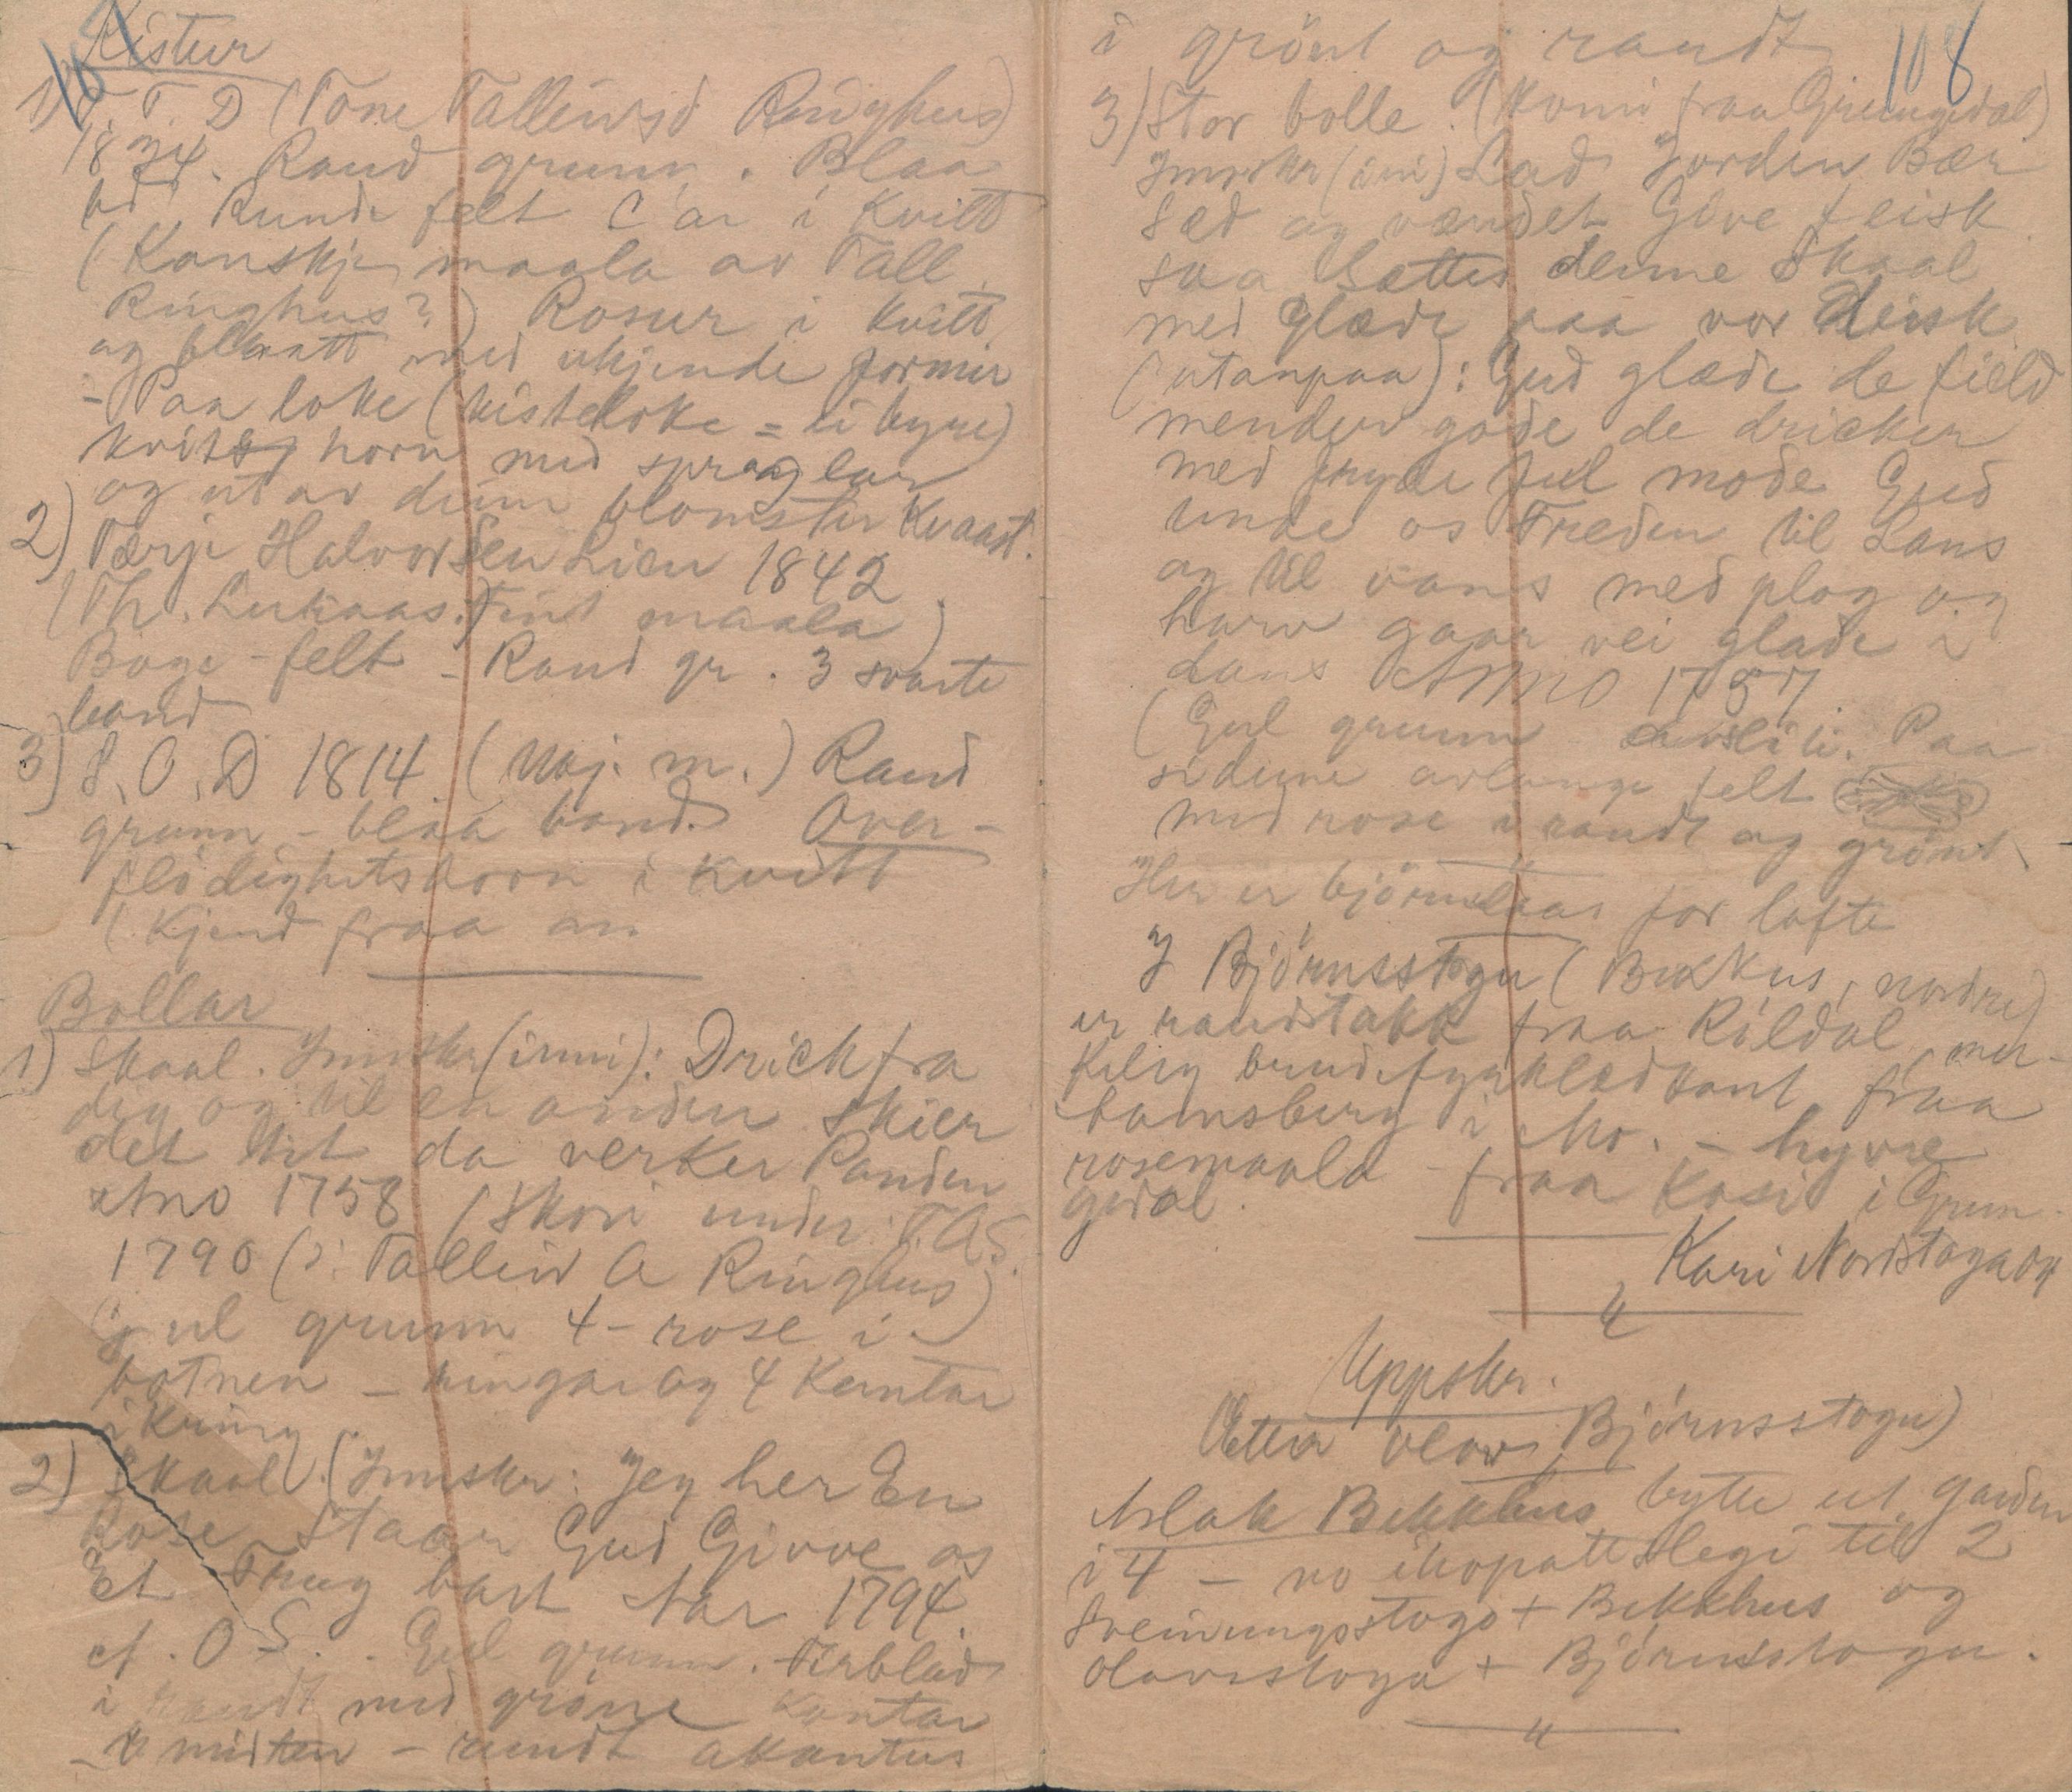 Kistur
1) T. T. D (Tone Talleivsd Ringhus)
1834. Raud grunn. Blaa
bd Runde felt C'ar i kvitt
(Kanskje maala av Tall.
Ringhus?) Rosur i kvitt
og blaatt med ukjende former
- Paa loke (kisteloke = ei hyre)
kvite horn med spraglar
og ut av deim blomster kvaast.
2) Terje Halvorsen Lien 1842
(Th. Lukaas. Fint maala)
Boge-felt - Raud gr. 3 svarte
band
3) S. O. D 1814 (Maj. m.) Raud
grunn - blaa band. Over-
flödighetshorn i kvitt
(Kjend fraa an.
Bollar
1) Skaal. Innskr (inni): Drick fra
dig og til en anden Skier
det Vit da verker Panden
Ano 1758 (Skori under: T.A.S.
1790 (ɔ: Talleiv A Ringhus)
Gul grunn 4-rose i
botnen - ringar og 4 kantar
ikring.
2) Skaal. (Innskr: Jeg her En
Rose Staar Gud Givve os
Et Frug bart Aar 1794.
A. O S. . Gul grunn. Firblad
i raudt med gröne kantar
- i midten - rundt akantus
108
i grönt og raudt
3) Stor bolle. (komi fraa Grungedal)
Innskr (inni) Lad Jorden Bær
Sæd og vandet Give feisk
saa Sættes denne Skaal
med glæde paa vor Disk
(utanpaa): Gud glæde de field
mender gode de dricker
med fryde ful mode Gud
unde os Freden til Lans
og til vans med plog og
harv gaar vei glade i
dans ANNO 1757
(Gul grunn avsliti. Paa
sidune avlange felt
med rose i raudt og grönt.
Her er björnelaas for lofte
I Björnsstogu (Bekkus, nordre)
er raudstakk fraa Röldal, mer-
keleg brudefyrklædkant fraa
bamsberg i Mo. - hyvre
rosemaala - fraa Kosi i Grun-
gedal.
Kari Nordstoga og
Uppskr.
(Etter Olav Björnsstogu)
Aslak Bekkhus bytte ut garden
i 4 - no ihopattslegi til 2
Sveinungsstogo + Bekkhus og
Olavsstoga + Björnsstogu.